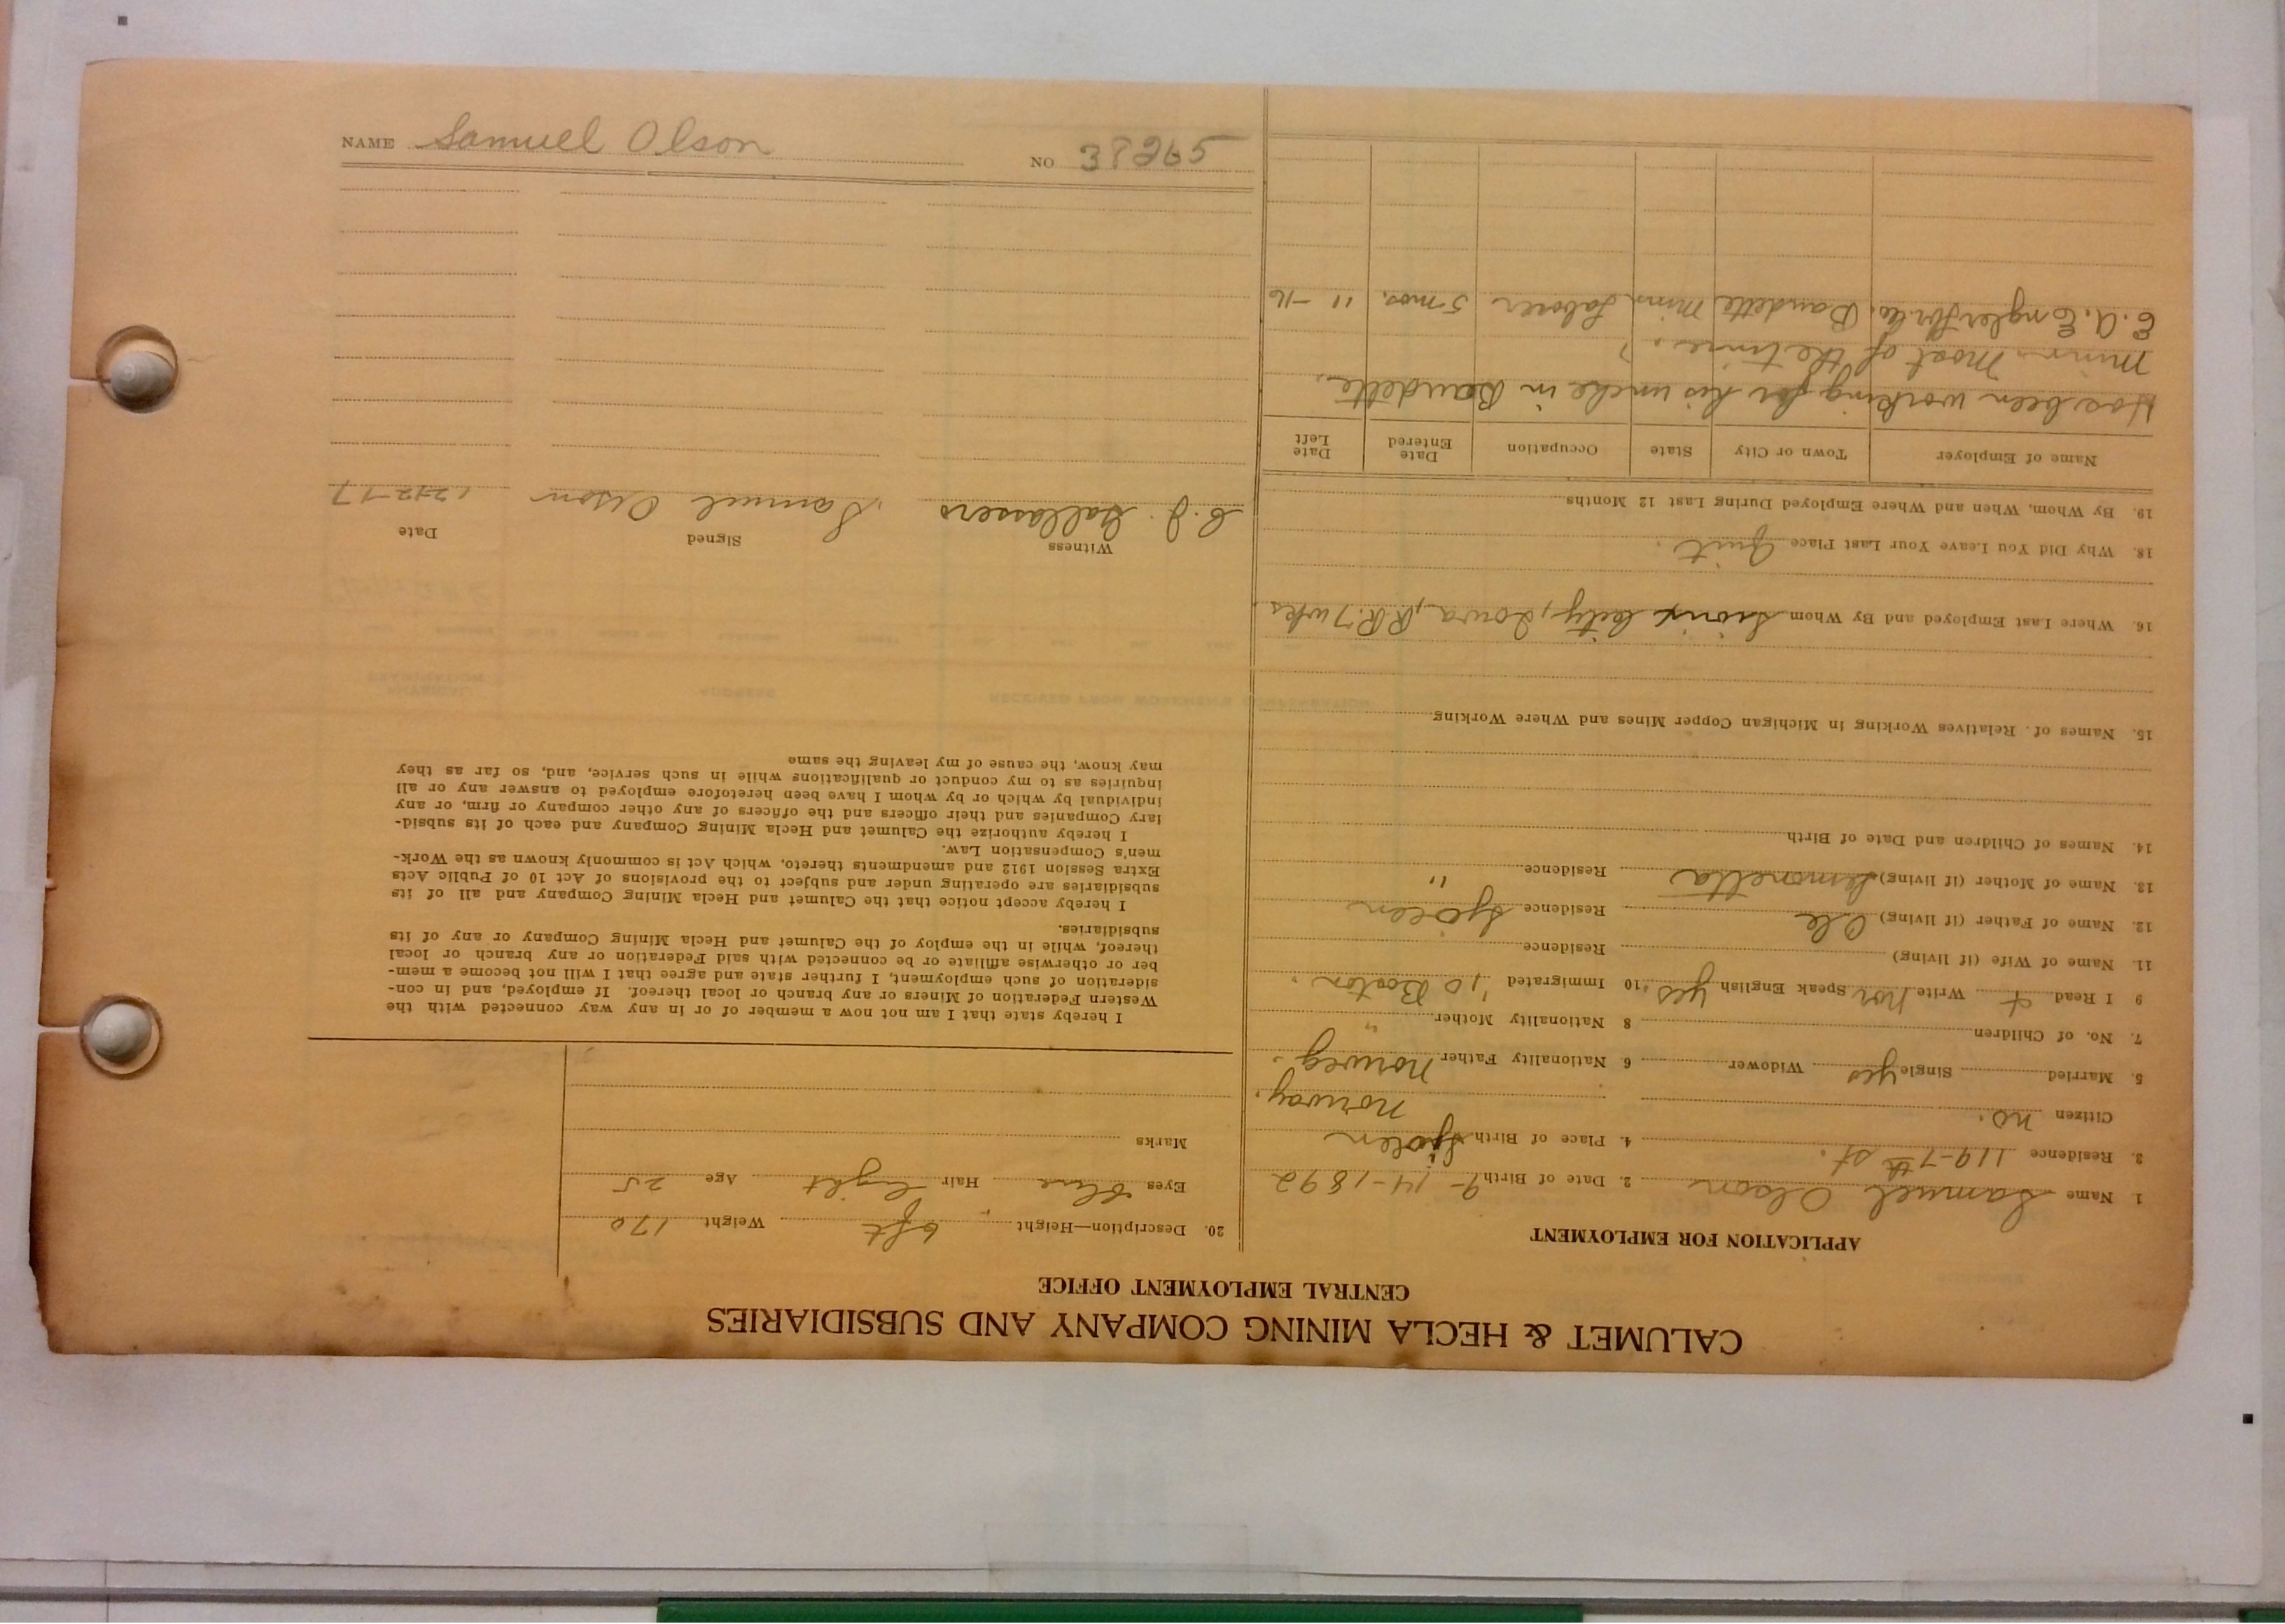 CALUMET & HECLA MINING COMPANY AND SUBSIDIARIES
CENTRAL EMPLOYMENT OFFICE
APPLICATION FOR EMPLOYMENT
1 Name Samuel Olson 2. Date of Birth 9-14-1892
3. Residence 119-7th st. 4. Place of Birth
Citizen no. Norway.
5. Married Single yes Widower 6 Nationality Father Norweg.
7. No. of Children 8 Nationality Mother "
9 I Read + Write Nor Speak English yes 10 Immigrated '10 Boston.
11. Name of Wife (if living) Residence
12. Name of Father (if living) Ole Residence
13. Name of Mother (if living) Residence "
14. Names of Children and Date of Birth
15. Names of Relatives Working in Michigan Copper Mines and Where Working
16. Where Last Employed and By Whom Sioux City, Iowa, R.R. 7 wks
18. Why Did You Leave Your Last Place Quit.
19. By Whom, When and Where Employed During Last 12 Months
Name of Employer Town or City State Occupation Date Entered Date Left
Has been working for his uncle in Baudette,
Minn. Most of the time.
E. A. Engler Baudette Minn Laborer 5 mos. 11-16
20. Description—Height 6 ft Weight 170
Eyes Blue Hair Light Age 25
Marks
I hereby state that I am not now a member of or in any way connected with the
Western Federation of Miners or any branch or local thereof. If employed, and in con-
sideration of such employment, I further state and agree that I will not become a mem-
ber or otherwise affiliate or be connected with said Federation or any branch or local
thereof, while in the employ of the Calumet and Hecla Mining Company or any of its
subsidiaries.
I hereby accept notice that the Calumet and Hecla Mining Company and all of its
subsidiaries are operating under and subject to the provisions of Act 10 of Public Acts
Extra Session 1912 and amendments thereto, which Act is commonly known as the Work-
men's Compensation Law.
I hereby authorize the Calumet and Hecla Mining Company and each of its subsid-
iary Companies and their officers and the officers of any other company or firm, or any
individual by which or by whom I have been heretofore employed to answer any or all
inquiries as to my conduct or qualifications while in such service, and, so far as they
may know, the cause of my leaving the same
Witness Signed Date
Samuel Olson 12-12-17
NAME Samuel Olson NO 38265